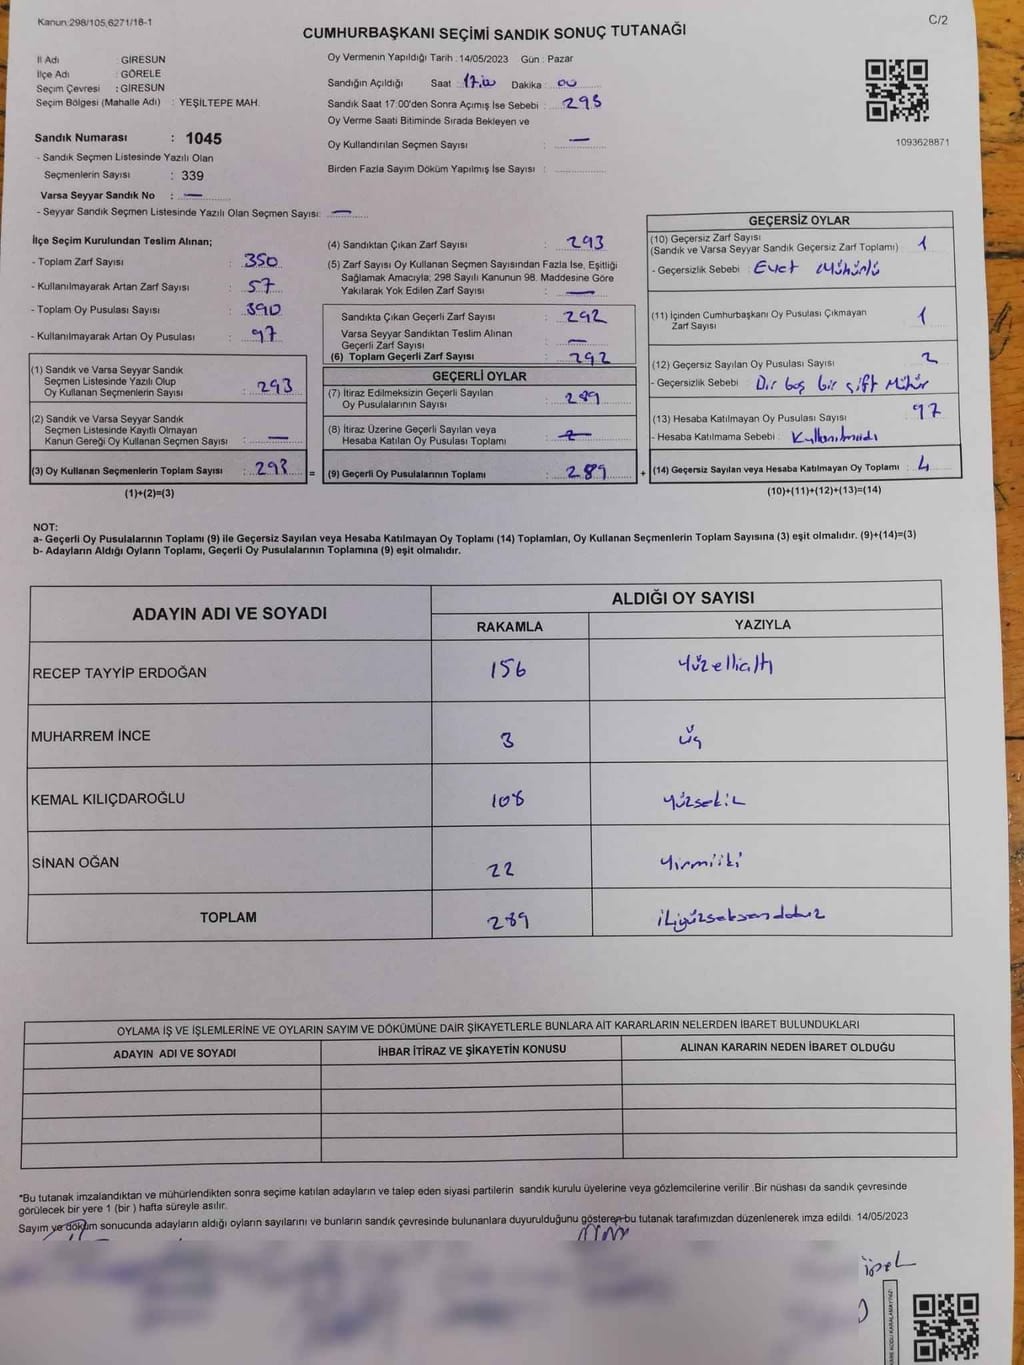 Kanun:298/105,6271/18-1
C/2
CUMHURBAŞKANI SEÇİMİ SANDIK SONUÇ TUTANAĞI
İl Adı : GİRESUN
İlçe Adı : GÖRELE
Seçim Çevresi : GİRESUN
Seçim Bölgesi (Mahalle Adı) : YEŞİLTEPE MAH.
Sandık Numarası : 1045
- Sandık Seçmen Listesinde Yazılı Olan
Seçmenlerin Sayısı : 339
Varsa Seyyar Sandık No : —
- Seyyar Sandık Seçmen Listesinde Yazılı Olan Seçmen Sayısı: —
Oy Vermenin Yapıldığı Tarih : 14/05/2023 Gün : Pazar
Sandığın Açıldığı Saat : 17.00 Dakika : 00
Sandık Saat 17.00'den Sonra Açımış İse Sebebi : 293
Oy Verme Saati Bitiminde Sırada Bekleyen ve
Oy Kullandırılan Seçmen Sayısı : —
Birden Fazla Sayım Döküm Yapılmış İse Sayısı :
1093628871
İlçe Seçim Kurulundan Teslim Alınan;
- Toplam Zarf Sayısı : 350
- Kullanılmayarak Artan Zarf Sayısı : 57
- Toplam Oy Pusulası Sayısı : 390
- Kullanılmayarak Artan Oy Pusulası : 97
(1) Sandık ve Varsa Seyyar Sandık
Seçmen Listesinde Yazılı Olup
Oy Kullanan Seçmenlerin Sayısı : 293
(2) Sandık ve Varsa Seyyar Sandık
Seçmen Listesinde Kayıtlı Olmayan
Kanun Gereği Oy Kullanan Seçmen Sayısı : —
(3) Oy Kullanan Seçmenlerin Toplam Sayısı : 293 =
(1)+(2)=(3)
(4) Sandıktan Çıkan Zarf Sayısı : 293
(5) Zarf Sayısı Oy Kullanan Seçmen Sayısından Fazla İse, Eşitliği
Sağlamak Amacıyla; 298 Sayılı Kanunun 98. Maddesine Göre
Yakılarak Yok Edilen Zarf Sayısı : —
Sandıkta Çıkan Geçerli Zarf Sayısı : 292
Varsa Seyyar Sandıktan Teslim Alınan
Geçerli Zarf Sayısı : —
(6) Toplam Geçerli Zarf Sayısı : 292
GEÇERLİ OYLAR
(7) İtiraz Edilmeksizin Geçerli Sayılan
Oy Pusulalarının Sayısı : 289
(8) İtiraz Üzerine Geçerli Sayılan veya
Hesaba Katılan Oy Pusulası Toplamı :
(9) Geçerli Oy Pusulalarının Toplamı : 289 +
GEÇERSİZ OYLAR
(10) Geçersiz Zarf Sayısı
(Sandık ve Varsa Seyyar Sandık Geçersiz Zarf Toplamı) : 1
- Geçersizlik Sebebi : Evet Mühürlü
(11) İçinden Cumhurbaşkanı Oy Pusulası Çıkmayan
Zarf Sayısı : 1
(12) Geçersiz Sayılan Oy Pusulası Sayısı : 2
- Geçersizlik Sebebi : Bir boş bir çift Mühür
(13) Hesaba Katılmayan Oy Pusulası Sayısı : 97
- Hesaba Katılmama Sebebi : Kullanılmadı
(14) Geçersiz Sayılan veya Hesaba Katılmayan Oy Toplamı : 4
(10)+(11)+(12)+(13)=(14)
NOT:
a- Geçerli Oy Pusulalarının Toplamı (9) ile Geçersiz Sayılan veya Hesaba Katılmayan Oy Toplamı (14) Toplamları, Oy Kullanan Seçmenlerin Toplam Sayısına (3) eşit olmalıdır. (9)+(14)=(3)
b- Adayların Aldığı Oyların Toplamı, Geçerli Oy Pusulalarının Toplamına (9) eşit olmalıdır.
ADAYIN ADI VE SOYADI
ALDIĞI OY SAYISI
RAKAMLA YAZIYLA
RECEP TAYYİP ERDOĞAN 156 Yüzellialtı
MUHARREM İNCE 3 Üç
KEMAL KILIÇDAROĞLU 108 Yüzsekiz
SİNAN OĞAN 22 Yirmiiki
TOPLAM 289 ikiyüzseksendokuz
OYLAMA İŞ VE İŞLEMLERİNE VE OYLARIN SAYIM VE DÖKÜMÜNE DAİR ŞİKAYETLERLE BUNLARA AİT KARARLARIN NELERDEN İBARET BULUNDUKLARI
ADAYIN ADI VE SOYADI İHBAR İTİRAZ VE ŞİKAYETİN KONUSU ALINAN KARARIN NEDEN İBARET OLDUĞU
*Bu tutanak imzalandıktan ve mühürlendikten sonra seçime katılan adayların ve talep eden siyasi partilerin sandık kurulu üyelerine veya gözlemcilerine verilir .Bir nüshası da sandık çevresinde
görülecek bir yere 1 (bir ) hafta süreyle asılır.
Sayım ve döküm sonucunda adayların aldığı oyların sayılarını ve bunların sandık çevresinde bulunanlara duyurulduğunu gösteren bu tutanak tarafımızdan düzenlenerek imza edildi. 14/05/2023